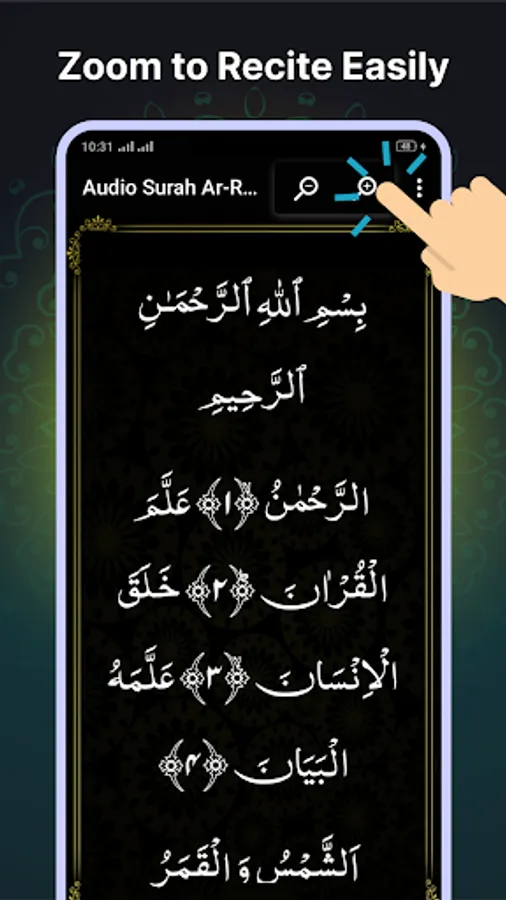 Zoom to Recite Easily
10:31
48
Audio Surah Ar-R...
بِسْمِ ٱللهِ ٱلرَّحْمَـٰنِ
ٱلرَّحِيمِ
الرَّحْمٰنُ ﴿١﴾ عَلَّمَ
الْقُرْاٰنَ ﴿٢﴾ خَلَقَ
الْاِنْسَانَ ﴿٣﴾ عَلَّمَهُ
الْبَيَانَ ﴿۴﴾
اَلشَّمْسُ وَالْقَمَرُ